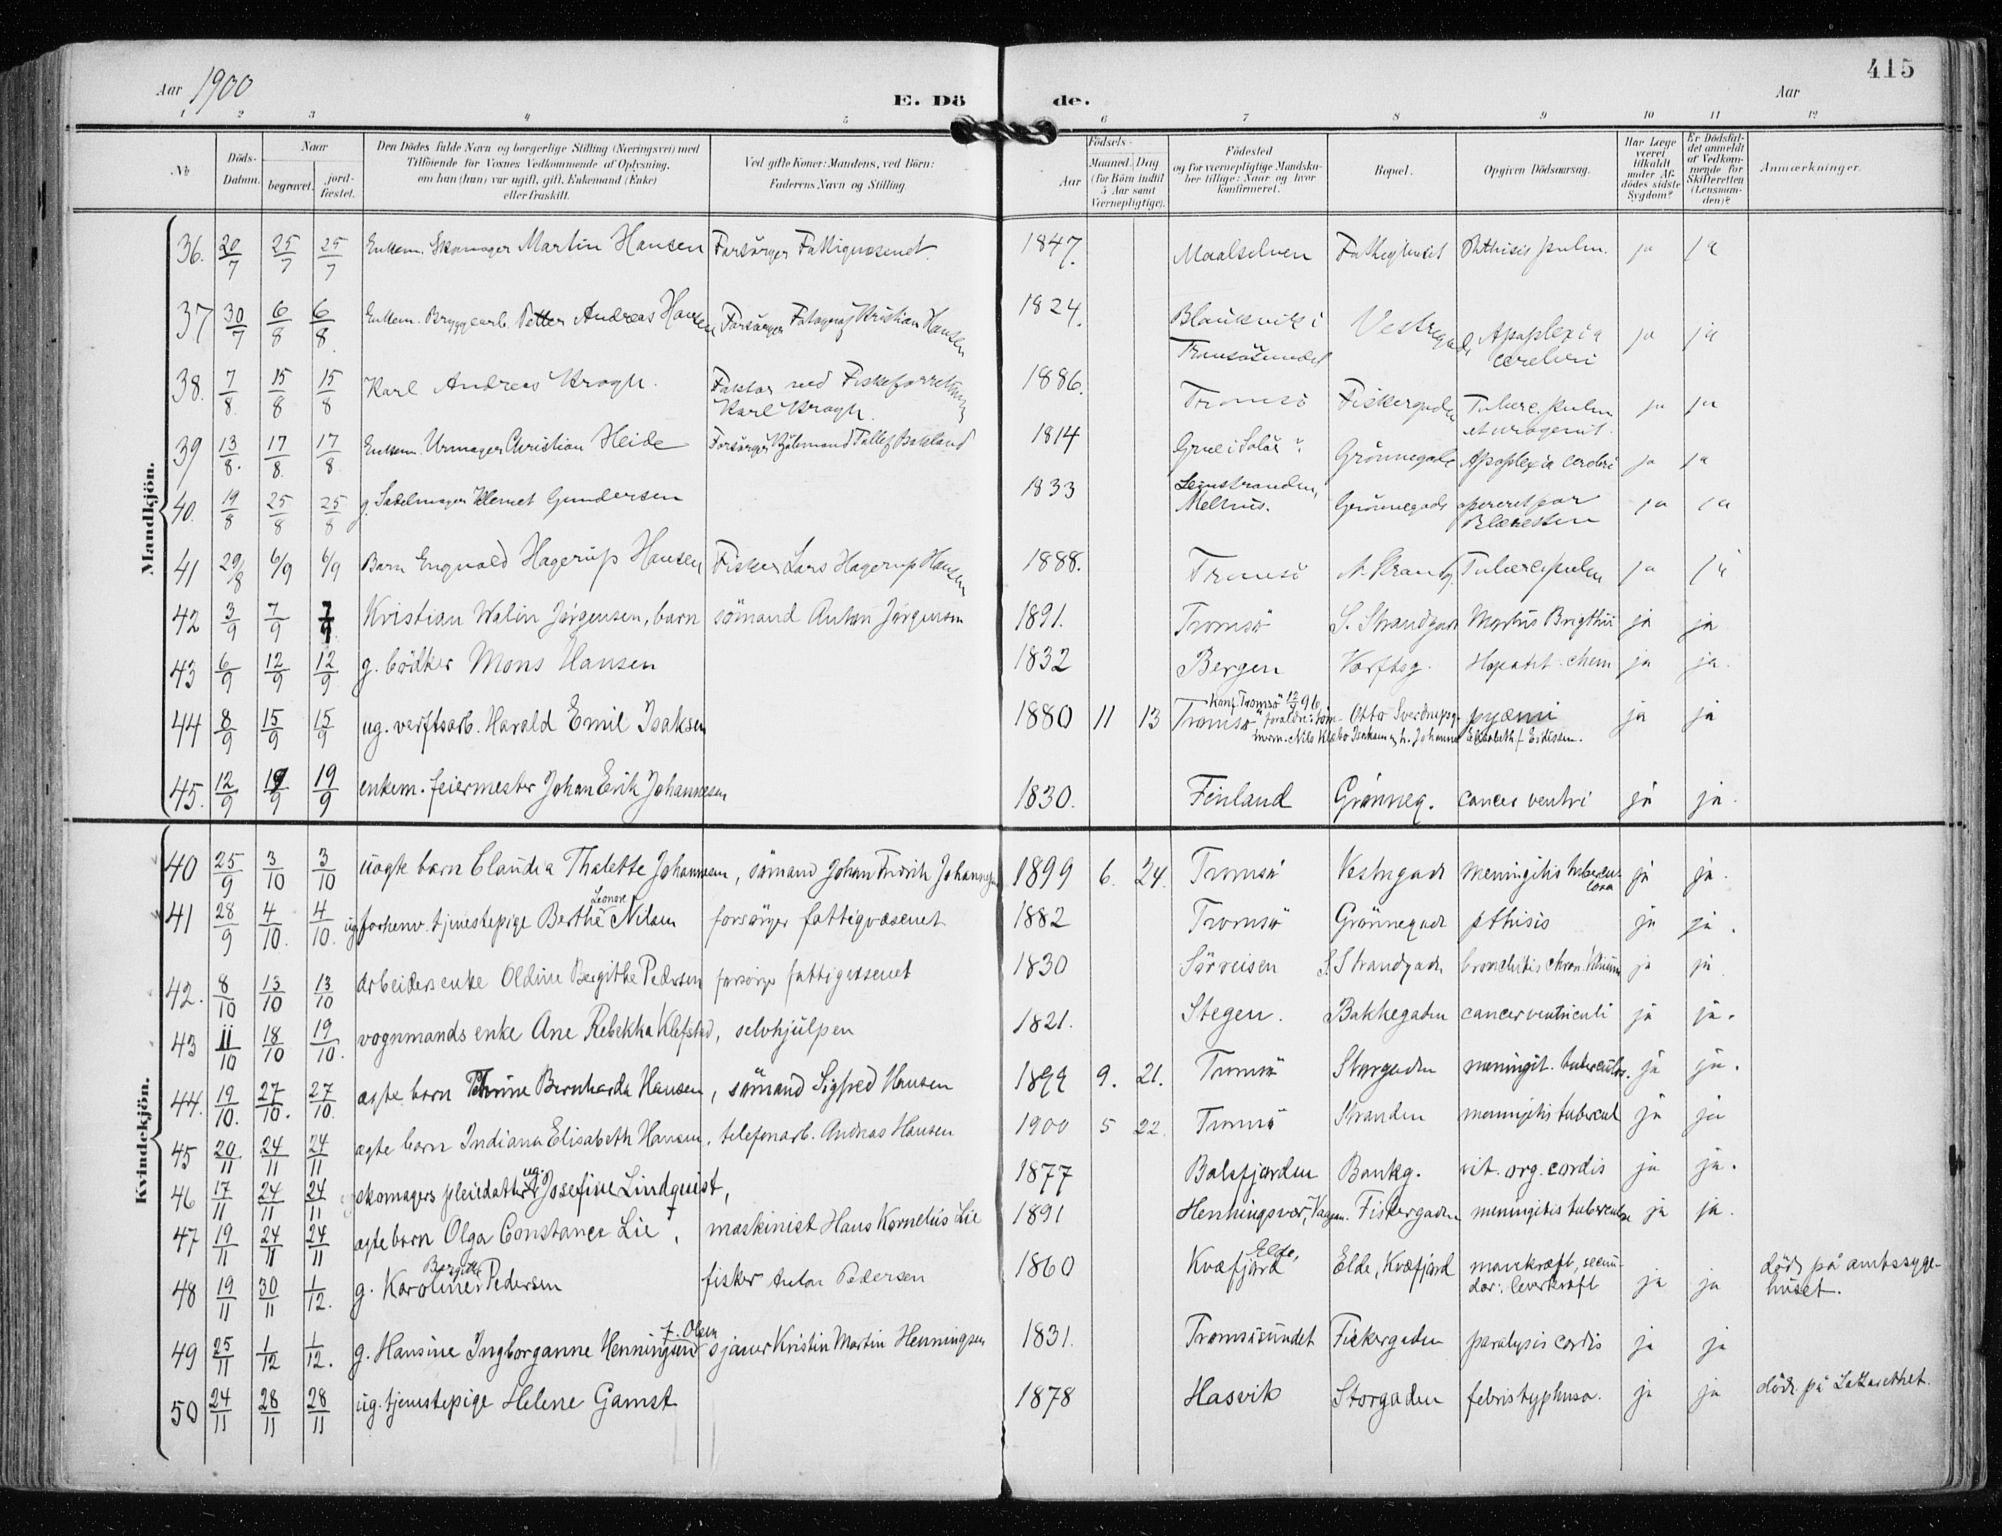 415
Aar 1900
E. Dö de.
Aar
1 2 3 4 5 6 7 8 9 10 11 12
No
Döds-Datum.
Naar
begravet.
jordfæstet.
Den Dödes fulde Navn og borgerlige Stilling (Næringsvei) med
Tilföiende for Voxnes Vedkommende af Oplysning,
om han (hun) var ugift, gift, Enkemand (Enke)
eller fraskilt.
Ved gifte Koner: Mandens, ved Börn:
Faderens Navn og Stilling.
Födsels-
Aar
Maaned. Dag
(for Börn indtil
5 Aar samt
Værnepligtige).
Födested
og for værnepligtige Mandska-
ber tillige: Naar og hvor
konfirmeret.
Bopæl.
Opgiven Dödsaarsag.
Har Læge
været
tilkaldt
under Af-
dödes sidste
Sygdom?
Er Dödsfal-
det anmeldt
af Vedkom-
mende for
Skifteretten
(Lensman-
den)?
Anmærkninger.
Mandkjön.
36. 20/7 25/7 25/7 Enkem. Skomager Martin Hansen Forsörges Fattigvæsenet. 1847. Maalselven Fattighuset Phthisis pulm. ja ja
37 30/7 6/8 6/8 Enkem. Bryggearb. Petter Andreas Hansen Forsörges Fotograf Kristian Hansen 1824. Blaukvik i Tromsösundet Vestregade Apoplexia cerebri ja ja
38. 7/8 15/8 15/8 Karl Andreas Kragh. Faktor ved Fiskeforretning Karl Kragh. 1886. Tromsö Fiskergaden Tuberc. pulm et urogenit. ja ja
39 13/8 17/8 17/8 Enkem. Urmager Christian Heide 1814 Grue i Solör Grönnegade Apoplexia cerebri ja ja
40. 19/8 25/8 25/8 g. Sadelmager Klemet Gundersen 1833 Leinstranden, Melhus. Grönnegade opereret for Blæresten ja ja
41 29/8 6/9 6/9 Barn Engvald Hagerup Hansen Fisker Lars Hagerup Hansen 1888. Tromsö N. Strandg. Tuberc. pulm ja ja
42 3/9 7/9 7/9 Kristian Walin Jørgensen, barn sömand Anton Jørgensen 1891. Tromsö S. Strandgad Morbus Brigthii ja ja
43 6/9 12/9 12/9 g. bödker Mons Hansen 1832 Bergen Værftsg. Hepatit. ja ja.
44 8/9 15/9 15/9 ug. verftsarb. Harald Emil Isaksen 1880 11 13 konf. Tromsö 96 Tromsö Otto Sverdrupsg. pyæmi ja ja
45. 12/9 19/9 19/9 enkem. feiermester Johan Erik Johannesen 1830. Finland Grönneg. cancer ventri ja ja.
Kvindekjön.
40 25/9 3/10 3/10 uægte barn Claudia Thalette Johannesen, sömand Johan Fridrik Johannesen 1899 6. 24. Tromsö Vestregade meningitis tuberculosa ja ja.
41 28/9 4/10 4/10. ug forhenv. tjenestepige Berthe Leonore Nilsen forsörges fattigvæsenet 1882 Tromsö Grönnegade pthisis ja ja.
42. 8/10 13/10 13/10 arbeiders enke Oldine Bergithe Pedersen forsörges fattigvæsenet 1830 Sörreisen S. Strandgade bronchitis chron. ja ja
43 11/10 18/10 19/10. vognmands enke Ane Rebekka Klefstad, selvhjulpen 1821. Stegen. Bakkegaden cancer ventriculi ja ja.
44. 19/10. 27/10. 27/10. ægte barn Trine Bernharda Hansen, sömand Sigfred Hansen 1899 9. 21. Tromsö Storgaden meningit. tuberculos. ja ja.
45 20/11 24/11 24/11 ægte barn Indiana Elisabeth Hansen, telefonarb. Andreas Hansen 1900 5 22. Tromsö Stranden meningitis tubercul ja ja
46 17/11 24/11 24/11 skomagers pleiedatter ug. Josefine Lindquist, 1877 Balsfjorden Bankg. vit. org. cordis ja ja.
47 19/11 24/11 24/11 ægte barn Olga Constance Lie, maskinist Hans Kornelius Lie 1891 Henningsvær, Vaagan. Fiskergaden meningitis tuberculose ja ja.
48 19/11 30/11 1/12. g. Karoline Bergitte Pedersen fisker Anton Pedersen 1860 Elde, Kvæfjord Elde, Kvæfjord mavekræft, secundær: leverkræft ja ja döde på amtssygehuset.
49 25/11 1/12 1/12. g. Hansine Ingborganne Henningsen f. Olsen sjauer Kristin Martin Henningsen 1831. Tromsösundet Fiskergaden paralysis cordis ja ja
50 24/11 28/11 28/11 ug. tjenestepige Helene Gamst 1878 Hasvik Storgaden febris typhusa. ja ja döde på Lazarethet.